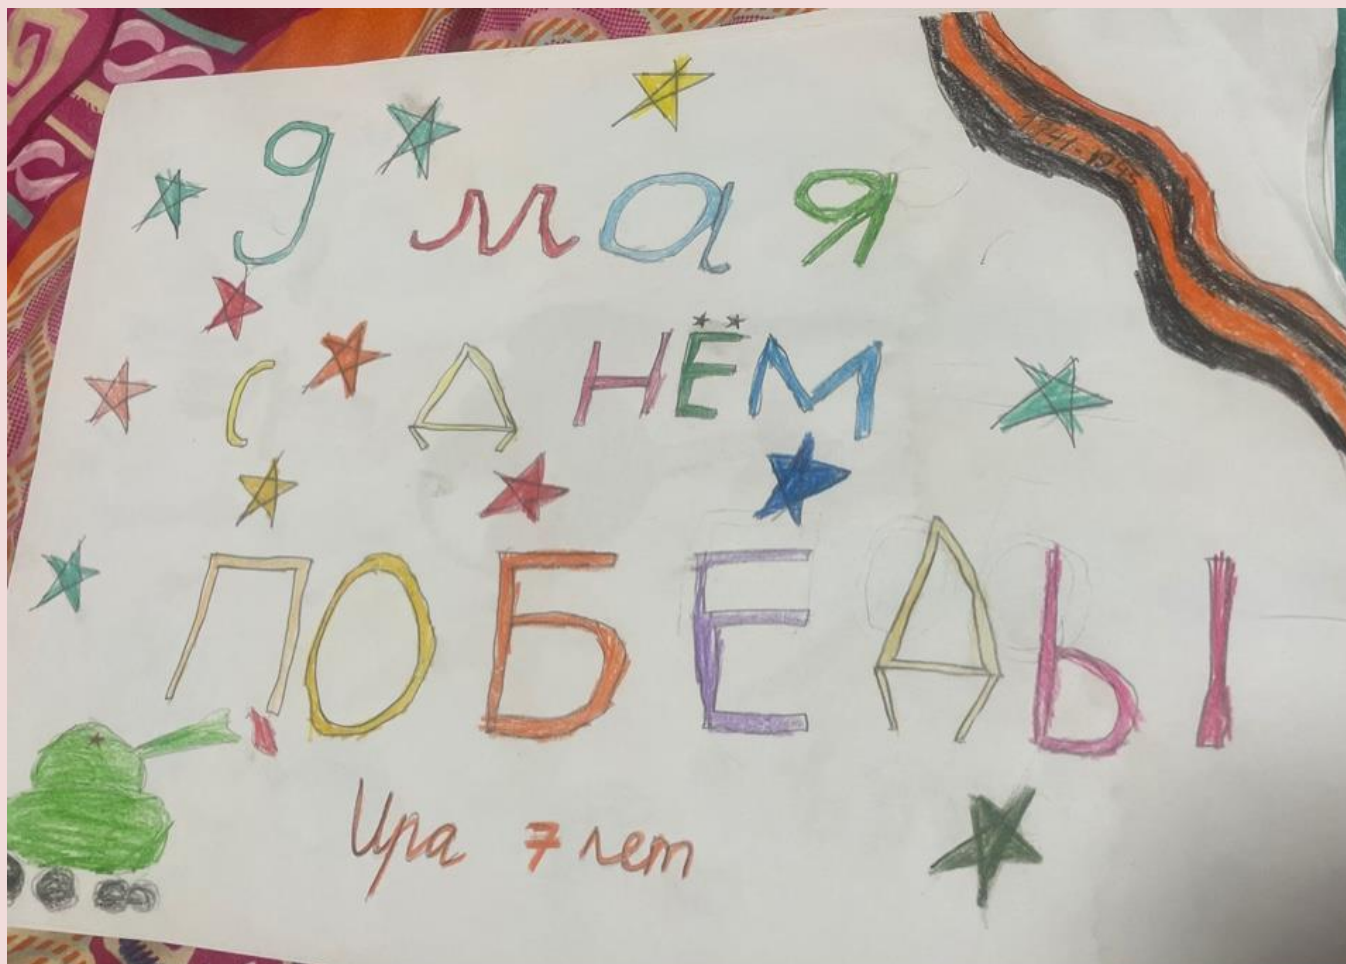 9 мая
1941-1945
С ДНЁМ
ПОБЕДЫ
Ира 7 лет